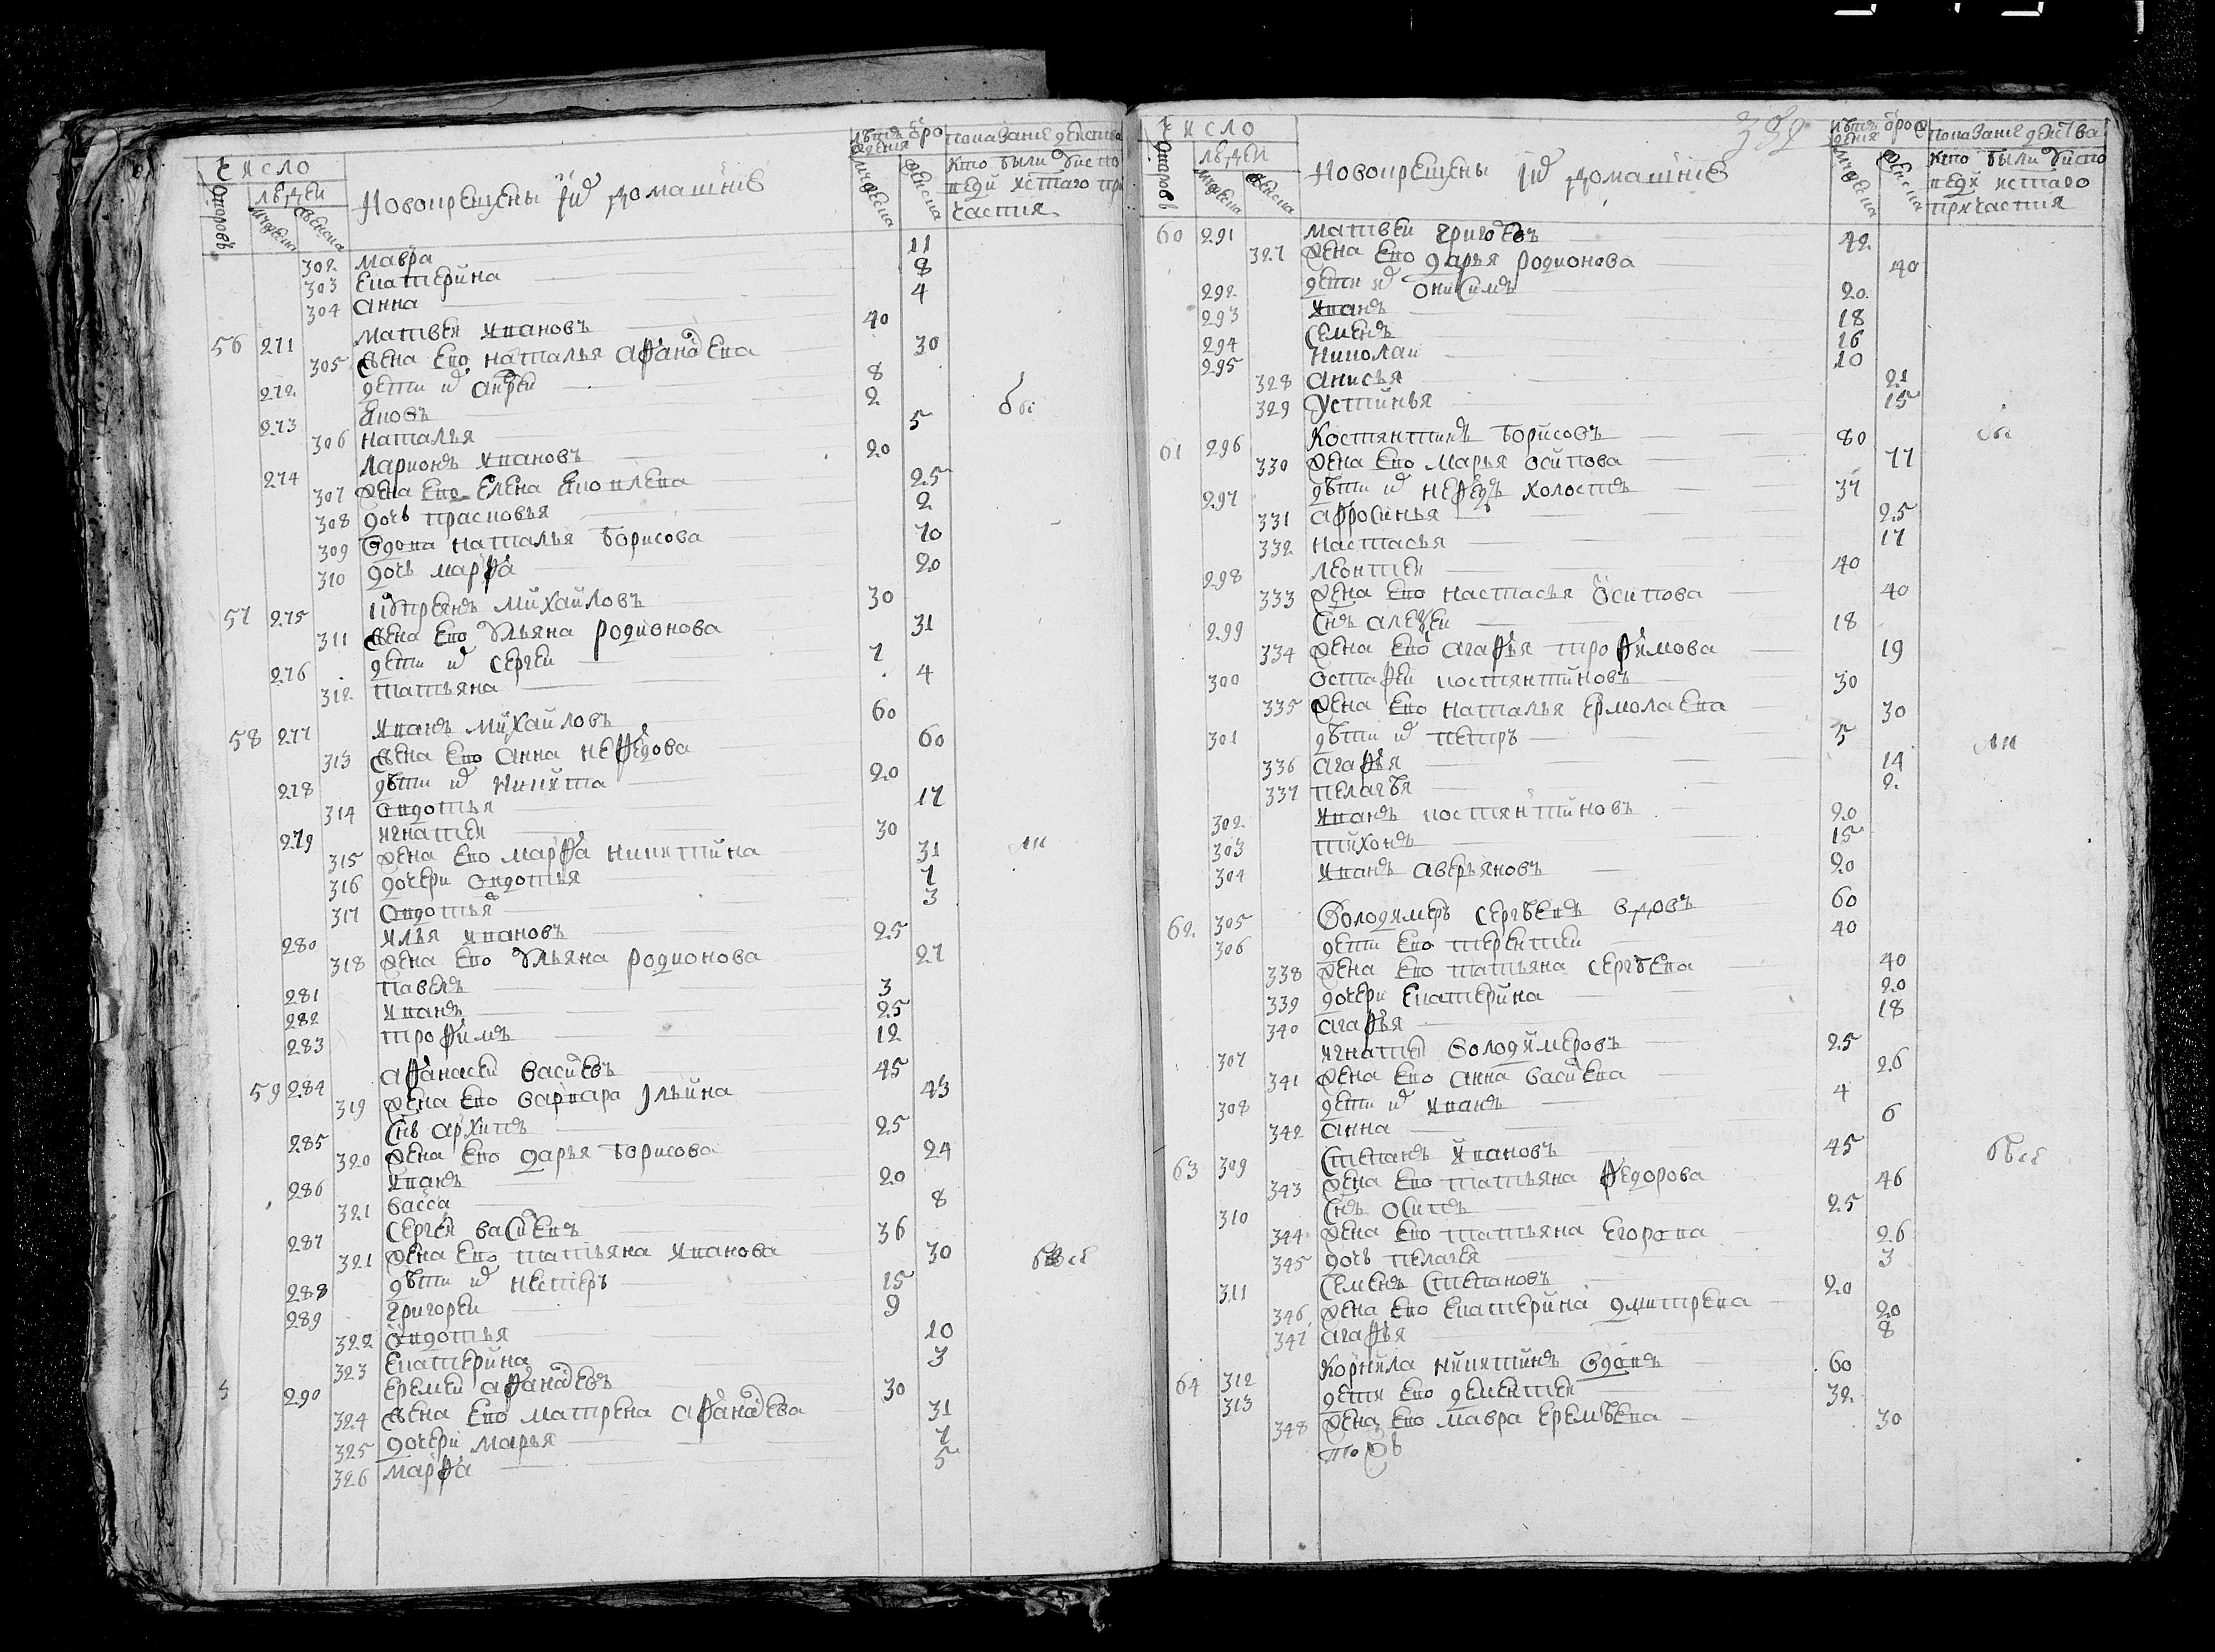 число
лѣтъ ѿ ро
показание действа
дворовъ
людей
Новокрещены и҆хъ домашние
ждения
кто были у испо
мужеска
женска
мужеска
женска
веди и с̃таго при
частия
302 мавра 11
303 Екатерина 8
304 анна 4
56 271 матвеи Ивановъ 40
305 жена Ево наталья афанасева 30
272 дети их андреи 8
273 яковъ 2
306 наталья 5
274 Ларионъ Ивановъ 20
307 жена Ево Елена яковлева 25
308 дочь прасковья 2
309 вдова наталья борисова 70
310 дочь марфа 20
57 275 михаиловъ 30
311 жена Ево ульяна родионова 31
276 дети их сергеи 7
312 татьяна 4
58 277 Иванъ михаиловъ 60
313 жена Ево анна нефедова 60
278 дѣти их никита 20
314 овдотья 17
279 игнатеи 30
315 жена Ево марфа никитина 31
316 дочери овдотья 7
317 овдотья 3
280 илья Ивановъ 25
318 жена Ево ульяна родионова 27
281 павелъ 3
282 Иванъ 25
283 трофимъ 12
59 284 афанасеи василевъ 45
319 жена Ево варвара ильина 43
285 снъ архипъ 25
320 жена Ево дарья борисова 24
286 Иванъ 20
321 васса 8
287 сергеи василевъ 36
321 жена Ево татьяна Иванова 30
288 дѣти их нестеръ 15
289 григореи 9
322 овдотья 10
323 Екатерина 3
290 еремеи афанасевъ 30
324 жена Ево матрена афанасева 31
325 дочери марья 7
326 марфа 5
число
лѣтъ ѿ рож
показание действа
дворовъ
людей
Новокрещены их домашние
дения
кто были у испо
мужеска
женска
мужеска
женска
веди и с̃таго
причастия
60 291 матвеи григоревъ 42
327 жена Ево дарья родионова 40
292 дети их онисимъ 20
293 Иванъ 18
294 семенъ 16
295 николаи 10
328 анисья 21
329 устинья 15
61 296 костянтинъ борисовъ 80
330 жена Ево марья осипова 77
297 дѣти их нефедъ холостъ 37
331 афросинья 25
332 настасья 17
298 леонтеи 40
333 жена Ево настасья осипова 40
299 снъ алексеи 18
334 жена Ево агафья трофимова 19
300 остафеи костянтиновъ 30
335 жена Ево наталья ермолаева 30
301 дѣти их петръ 5
336 агафья 14
337 пелагья 2
302 Иванъ костянтиновъ 20
303 тихонъ 15
304 Иванъ аверьяновъ 20
62 305 володимеръ сергѣевъ вдовъ 60
306 дети Ево терентеи 40
338 жена Ево татьяна сергѣева 40
339 дочери Екатерина 20
340 агафья 18
307 игнатеи володимеровъ 25
341 жена Ево анна василева 26
308 дети их Иванъ 4
342 анна 6
63 309 степанъ Ивановъ 45
343 жена Ево татьяна федорова 46
310 снъ осипъ 25
344 жена Ево татьяна Егорова 26
345 дочь пелагея 3
311 семенъ степановъ 20
346 жена Ево Екатерина дмитрева 20
347 агафья 8
64 312 корнила никитинъ вдовъ 60
313 дети Ево дементеи 32
348 жена Ево мавра еремѣева 30